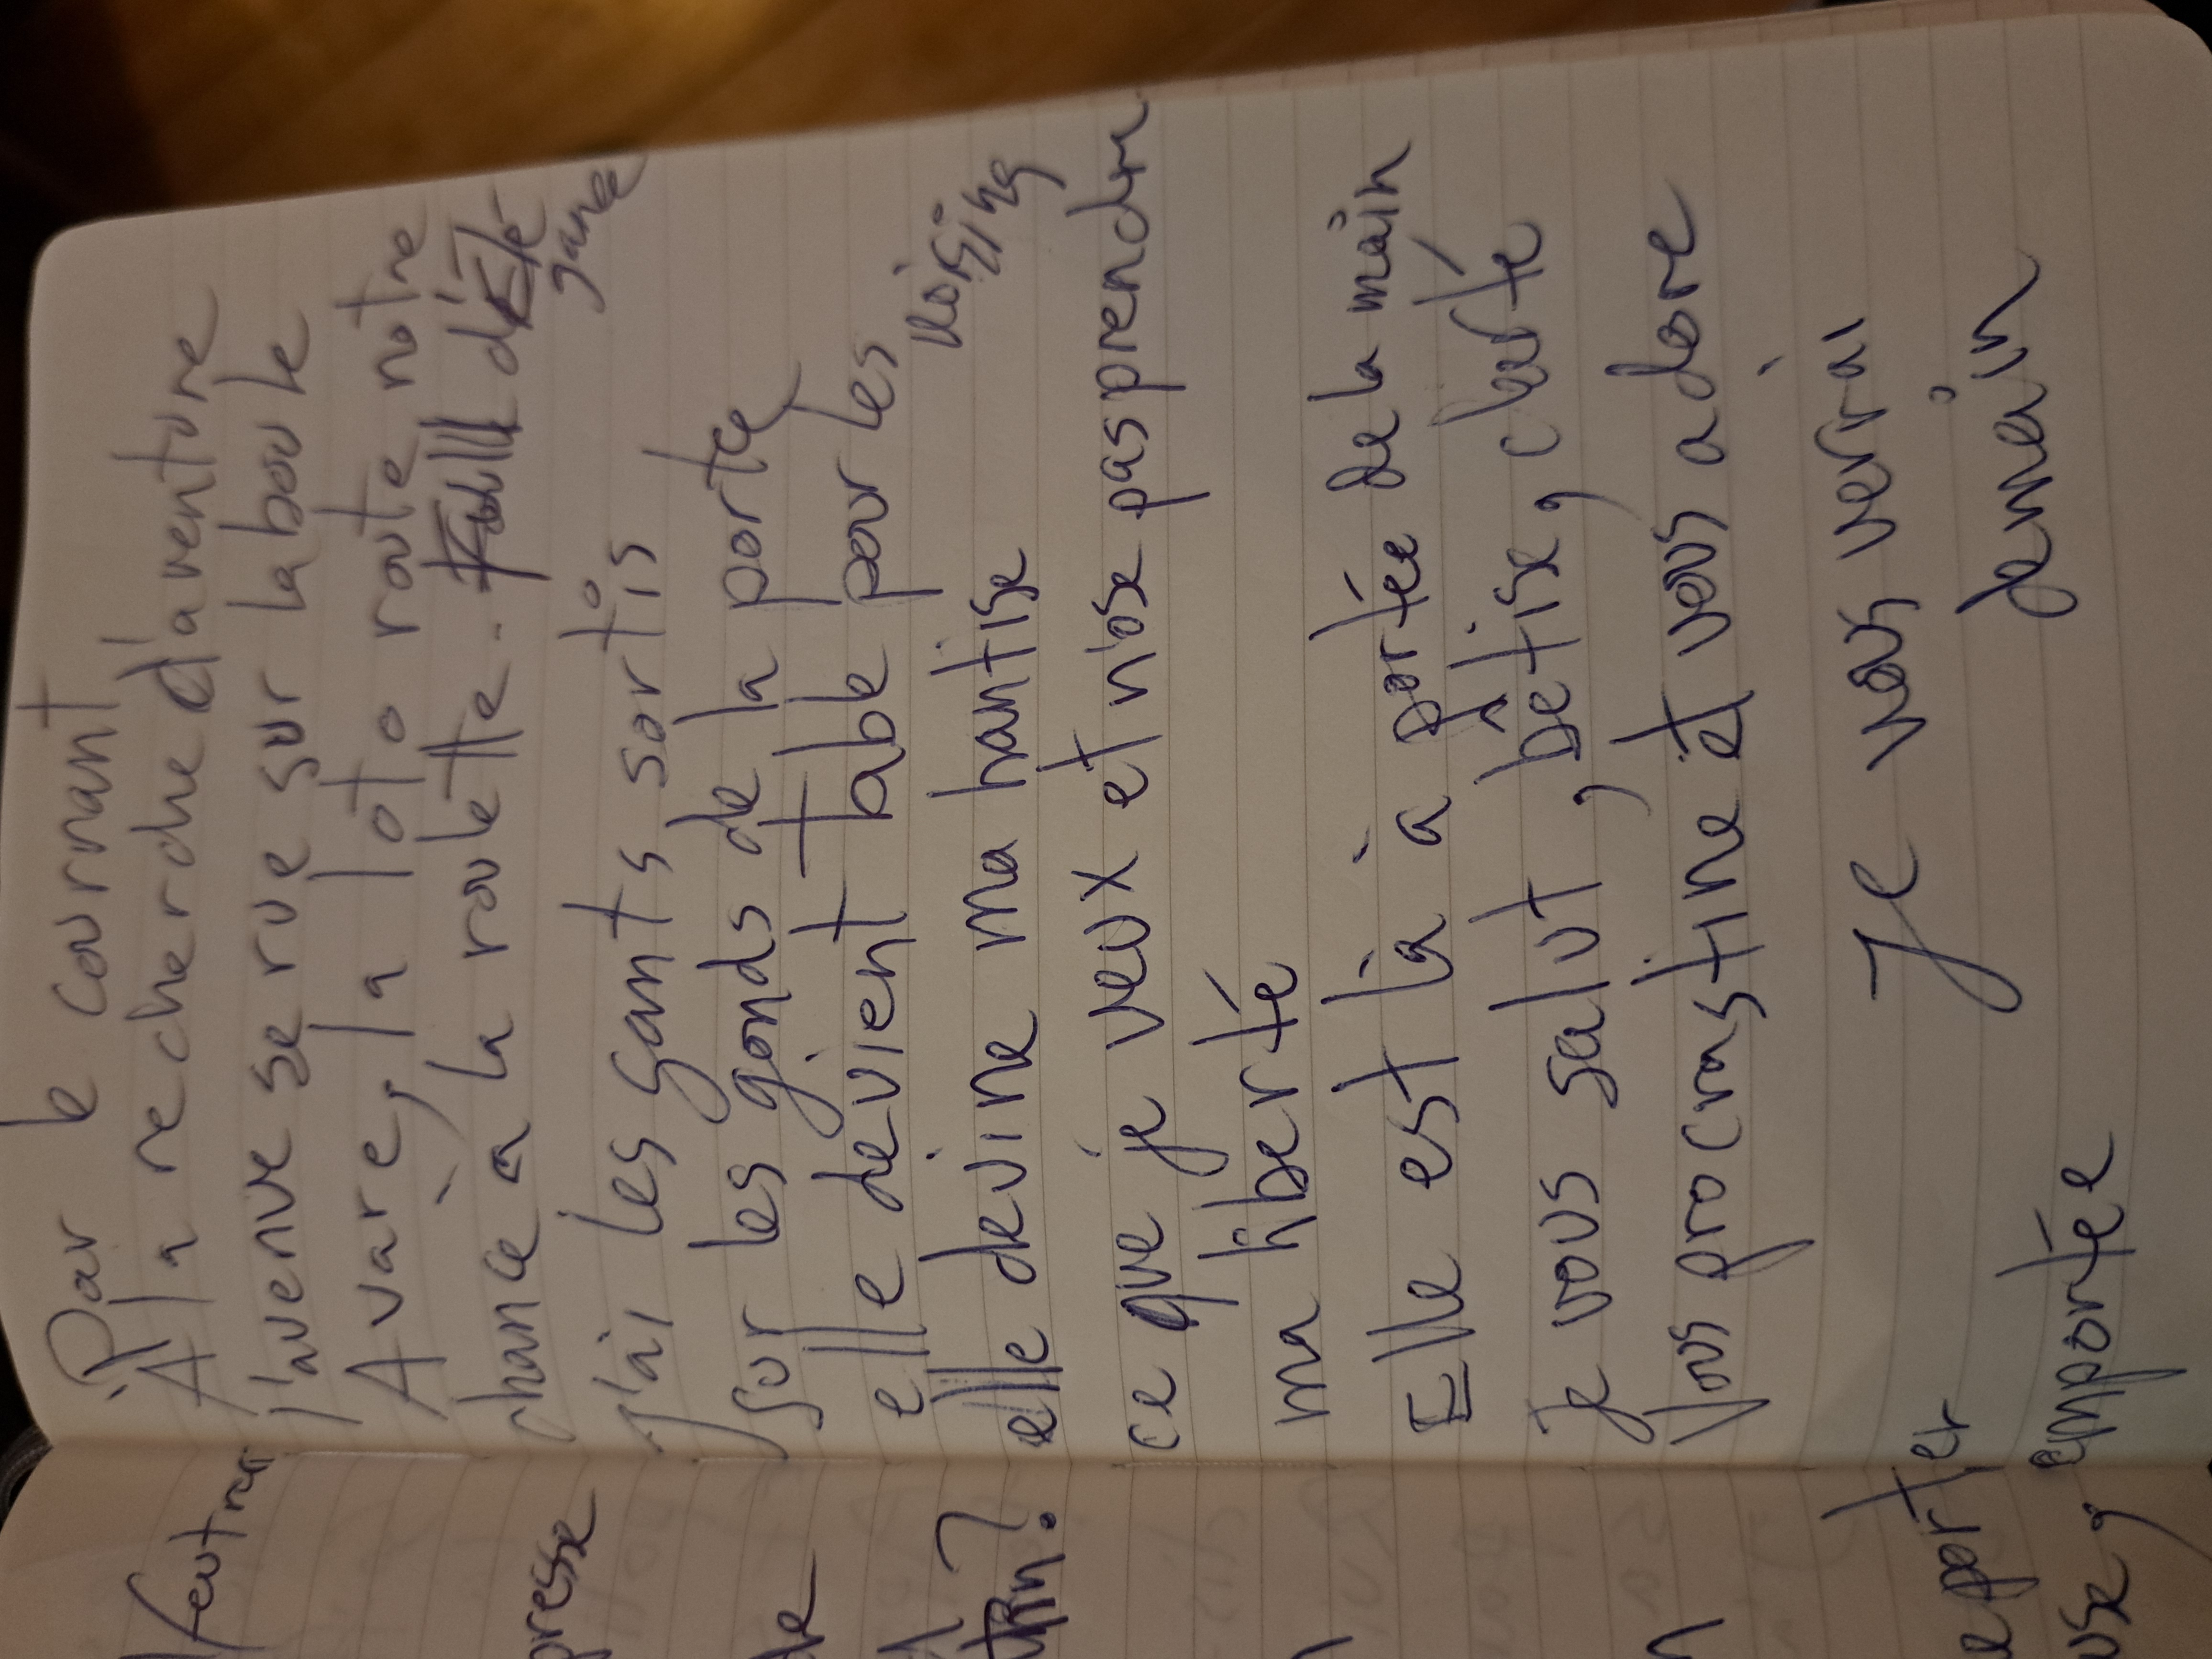 Par le courant
A la recherche d'aventure
l'avenue se rue sur la boule
Avare, la loto route notre
chance à la roulette. d'élé-
gance
J'ai les gants sortis
sur les gonds de la porte
elle devient table pour les
voisins
elle devine ma hantise
ce que je veux et n'ose pas prendre
ma liberté
Elle est là à portée de la main
je vous salut, bêtise, clarté
Vous procrastine et vous adore
Je vous verrai
demain
emportée
presse